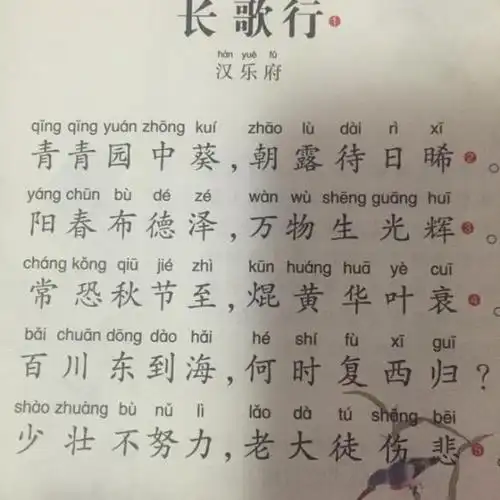 长歌行①
hàn yuè fǔ
汉乐府
qīng qīng yuán zhōng kuí zhāo lù dài rì xī
青青园中葵,朝露待日晞②。
yáng chūn bù dé zé wàn wù shēng guāng huī
阳春布德泽,万物生光辉③。
cháng kǒng qiū jié zhì kūn huáng huā yè cuī
常恐秋节至,焜黄华叶衰④。
bǎi chuān dōng dào hǎi hé shí fù xī guī
百川东到海,何时复西归?
shào zhuàng bù nǔ lì lǎo dà tú shāng bēi
少壮不努力,老大徒伤悲⑤。